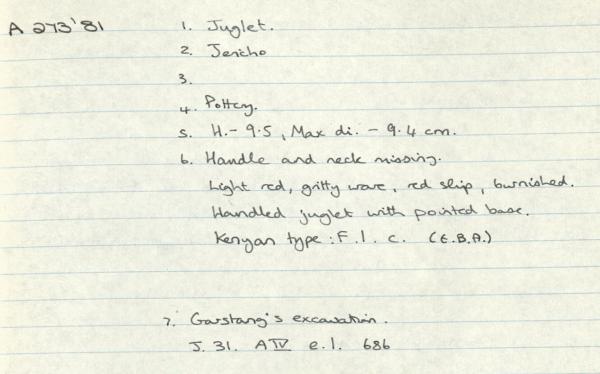 A 273'81 1. Juglet.
2. Jericho
3.
4. Pottery.
5. H. - 9.5, Max di. - 9.4 cm.
6. Handle and neck missing.
Light red, gritty ware, red slip, burnished.
Handled juglet with pointed base.
Kenyan type: F.1.c. (E.B.A.)
7. Garstang's excavation.
J. 31. A IV e.1. 686